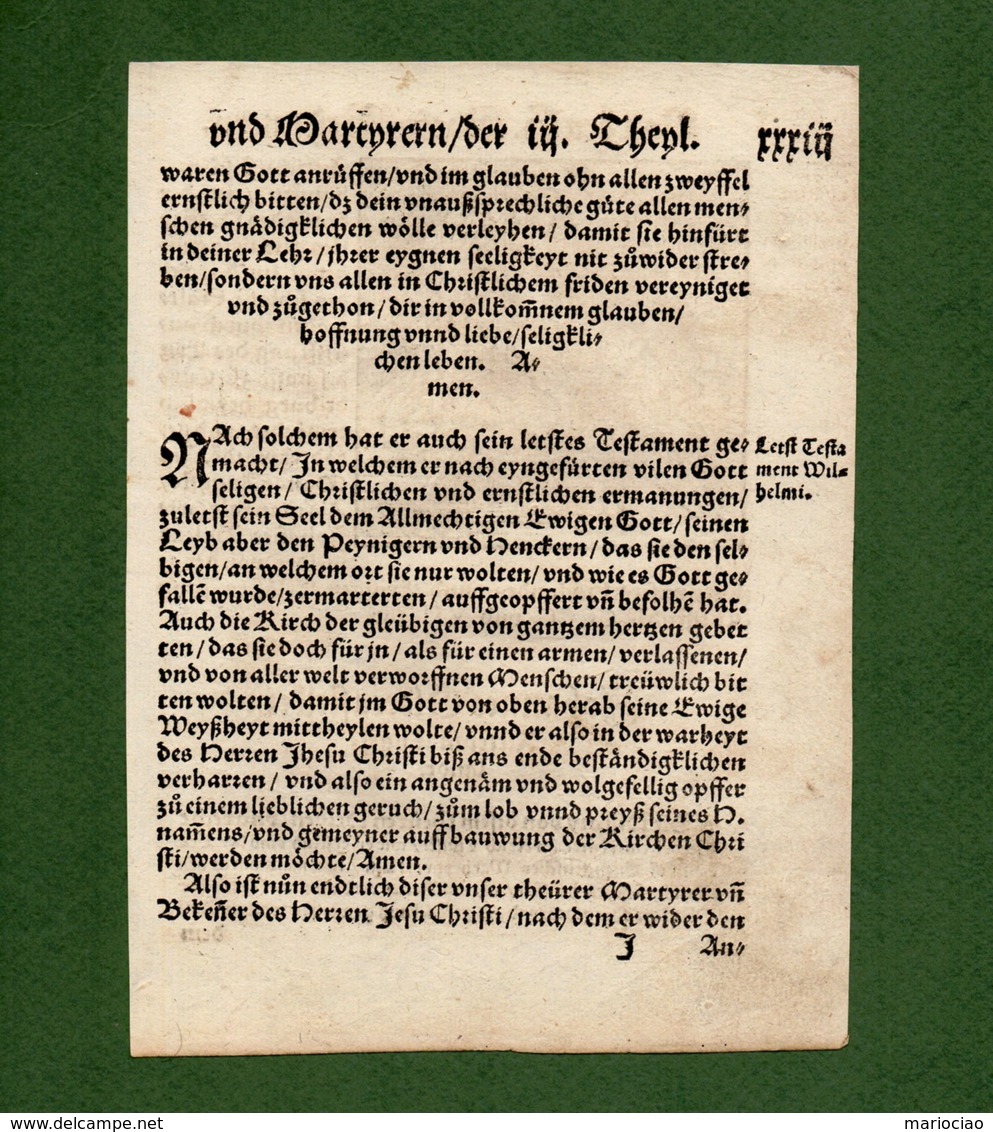 vnd Martyrern/der iij. Theyl. xxxiij
waren Gott anrůffen/vnd im glauben ohn allen zweyffel
ernstlich bitten/dz dein vnaußsprechliche gůte allen men⸗
schen gnädigklichen wölle verleyhen/ damit sie hinfürt
in deiner Lehr/jhrer eygnen seeligkeyt nit zůwider stre⸗
ben/sondern vns allen in Christlichem friden vereyniget
vnd zůgethon/dir in vollkom̃nem glauben/
hoffnung vnnd liebe/seligkli⸗
chen leben. A⸗
men.
NAch solchem hat er auch sein letstes Testament ge⸗
macht/ In welchem er nach eyngefürten vilen Gott
seligen/ Christlichen vnd ernstlichen ermanungen/
zuletst sein Seel dem Allmechtigen Ewigen Gott/seinen
Leyb aber den Peynigern vnd Henckern/das sie den sel⸗
bigen/an welchem ort sie nur wolten/vnd wie es Gott ge⸗
fallẽ wurde/zermarterten/auffgeopffert vñ befolhẽ hat.
Auch die Kirch der gleübigen von gantzem hertzen gebet
ten/das sie doch für jn/als für einen armen/verlassenen/
vnd von aller welt verworffnen Menschen/treüwlich bit
ten wolten/damit jm Gott von oben herab seine Ewige
Weyßheyt mittheylen wolte/vnnd er also in der warheyt
des Herren Jhesu Christi biß ans ende beständigklichen
verharren/vnd also ein angenäm vnd wolgefellig opffer
zů einem lieblichen geruch/zům lob vnnd preyß seines H.
nam̃ens/vnd gemeyner auffbauwung der Kirchen Chri
sti/werden möchte/Amen.
Also ist nůn endtlich diser vnser theürer Martyrer vñ
Bekeñer des Herren Jesu Christi/nach dem er wider den
J An⸗
Letst Testa
ment Wil⸗
helmi.
delcampe.net
mariociao